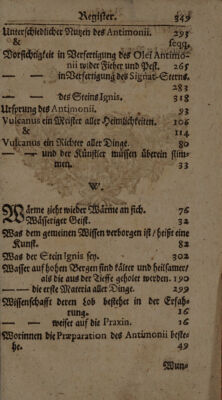 Register. 349
Unterschiedlicher Nutzen des Antimonii. 293
& seqq.
Vorsichtigkeit in Verfertigung des Olei Antimo-
nii wider Fieber und Pest. 265
— — in Verfertigung des Signat-Sterns.
283
— — des Steins Ignis. 318
Ursprung des Antimonii. 93
Vulcanus ein Meister aller Heimlichkeiten. 106
& 114
Vulcanus ein Richter aller Dinge. 80
— — und der Künstler müssen überein stim-
men. 33
W.
Wärme zieht wieder Wärme an sich. 76
Wässeriger Geist. 32
Was dem gemeinen Wissen verborgen ist / heist eine
Kunst. 82
Was der Stein Ignis sey. 302
Wasser auf hohen Bergen sind kälter und heilsamer/
als die aus der Tieffe geholet werden. 190
— — die erste Materia aller Dinge. 299
Wissenschafft deren Lob bestehet in der Erfah-
rung. 16
— — weiset auf die Praxin. 16
Worinnen die Præparation des Antimonii beste-
he. 49
Wun-